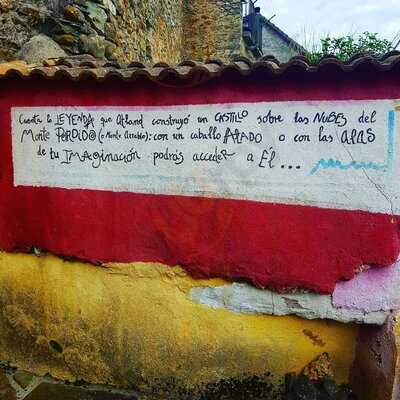 Cuenta la LEYENDA que Atland construyó un CASTILLO sobre las NUBES del
Monte PERDIDO (o Monte Arrabio): con un caballo ALADO o con las ALAS
de tu IMAGINACIÓN podrás acceder a Él...